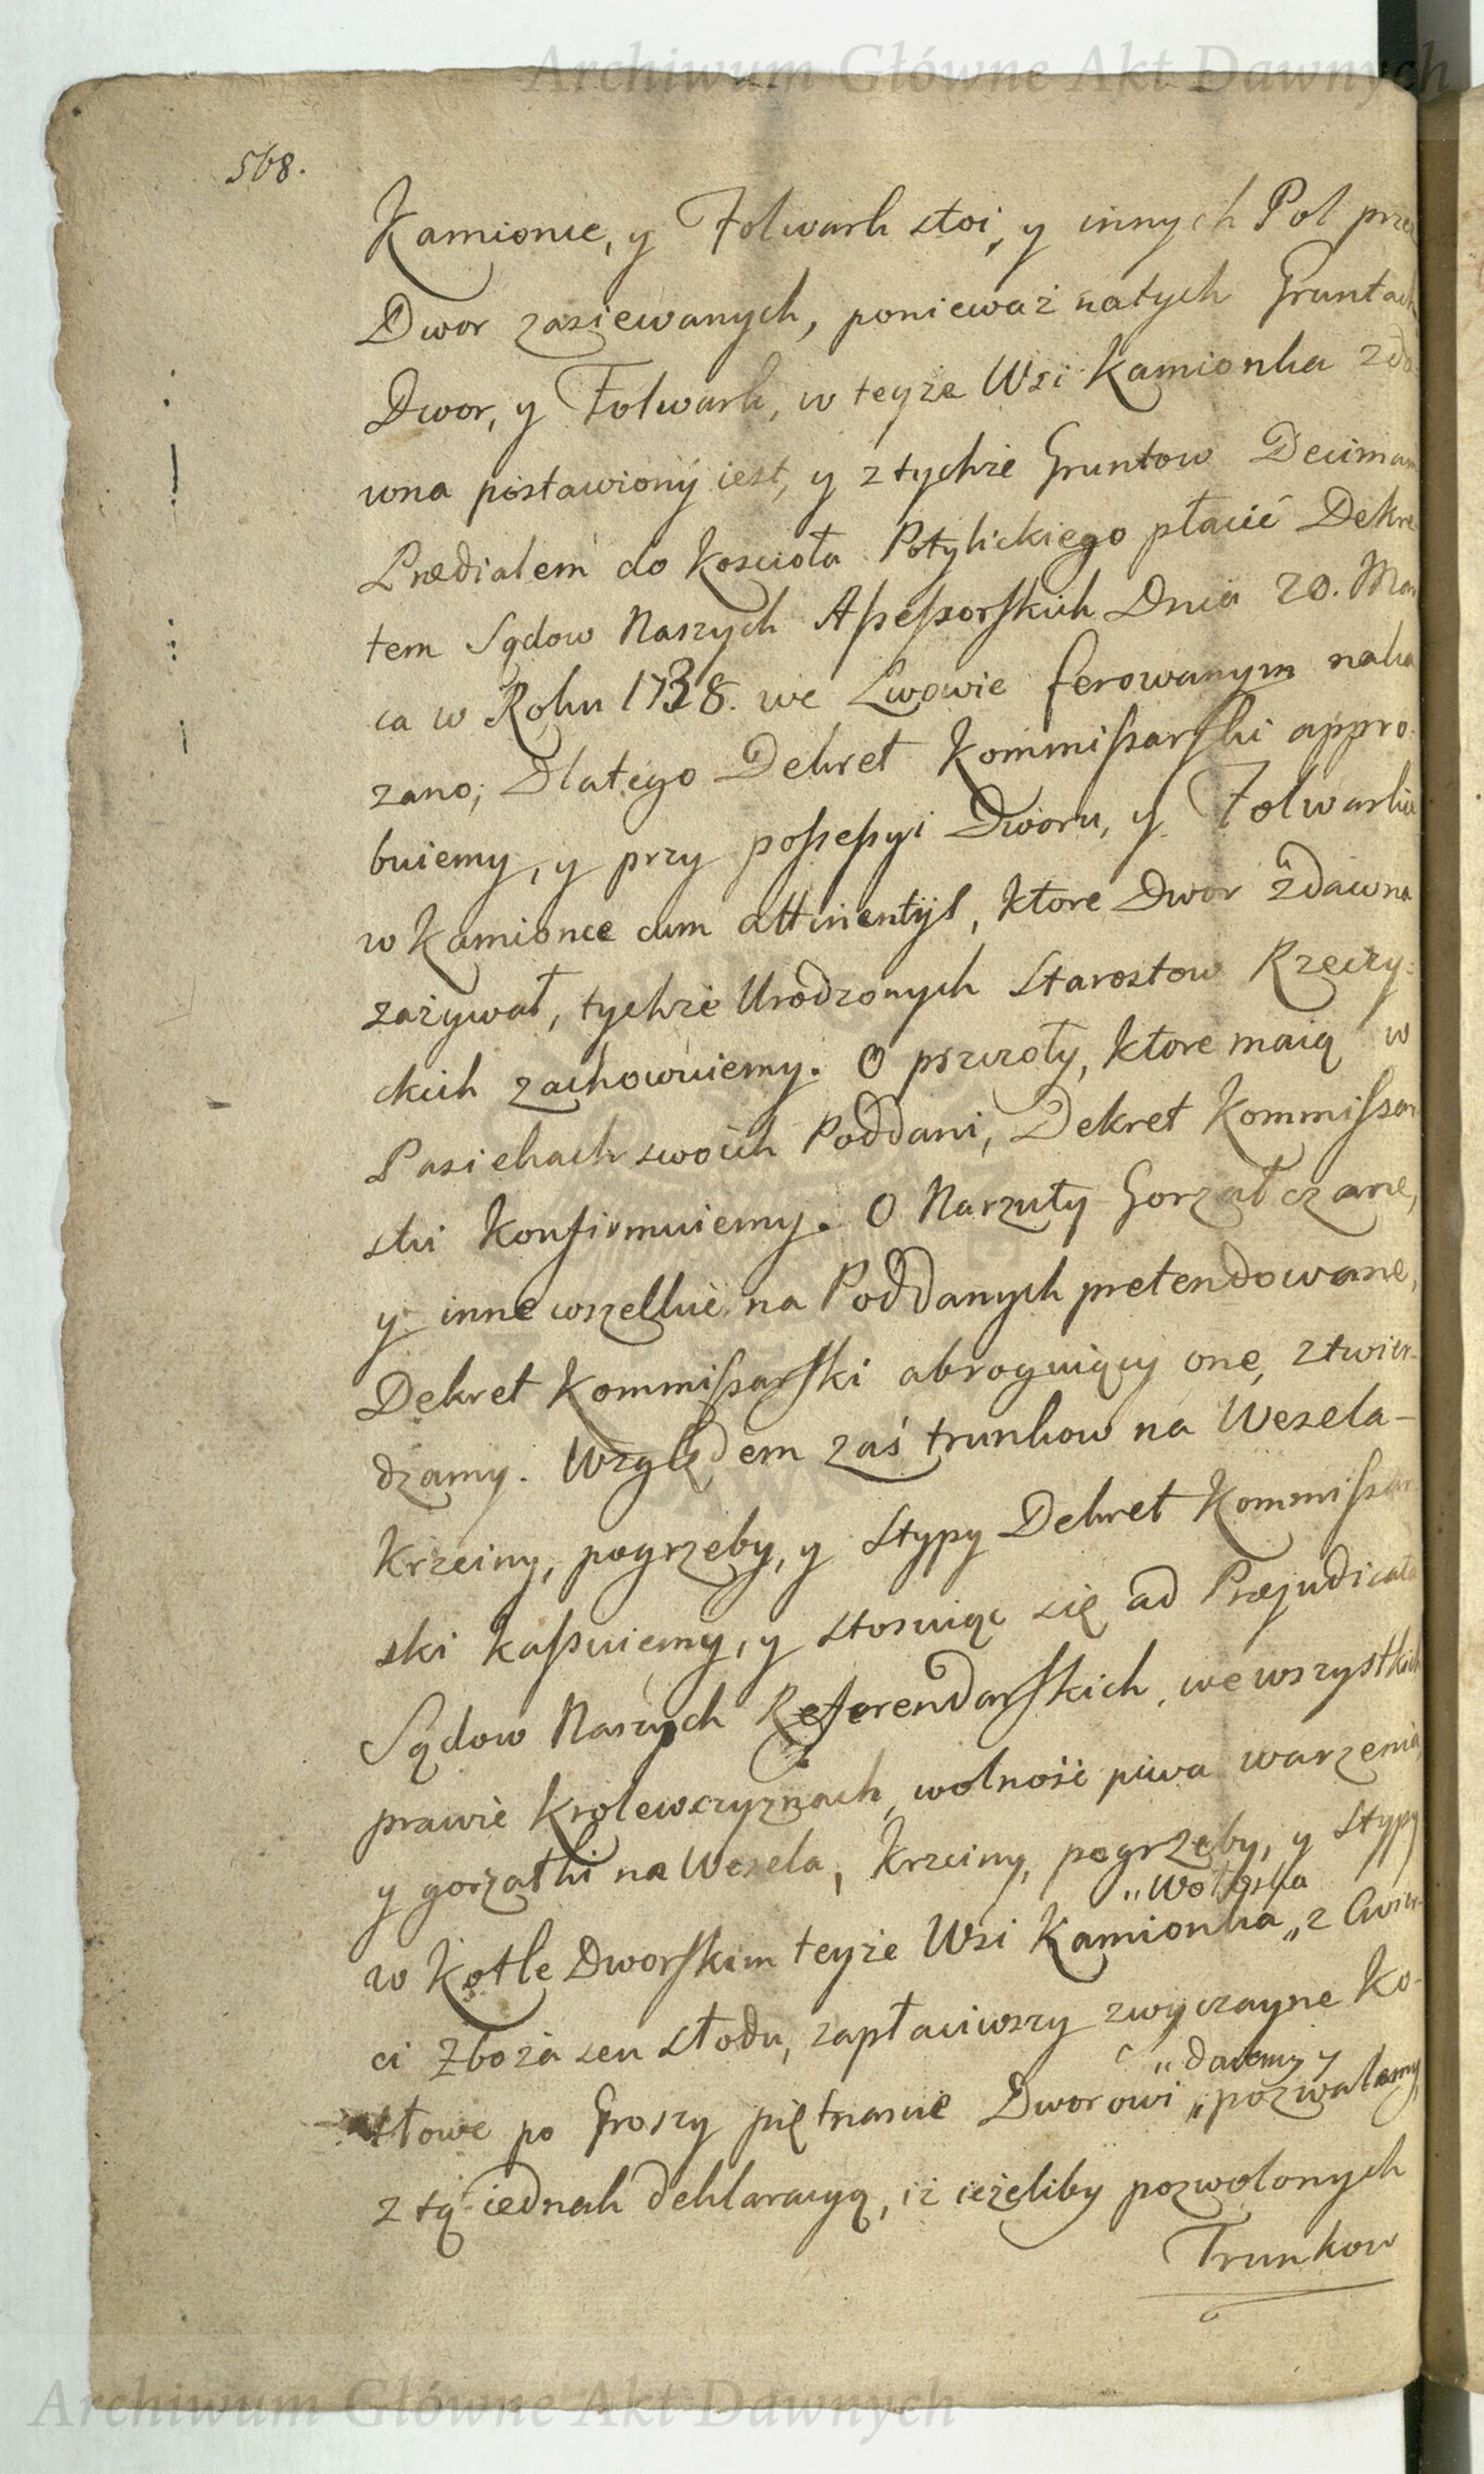 Archiwum Główne Akt Dawnych
568.
Kamionce, y Folwark stoi, y innych Pol przez
Dwor zasiewanych, ponieważ natych Gruntach
Dwor, y Folwark, w teyże Wsi Kamionka zda
wna postawiony iest, y z tychże Gruntow Decimam
Prædialem do Kościoła Potylickiego płacić Dekre
tem Sądow Naszych Assessorskich Dnia 20. Mar
ca w Roku 1738. we Lwowie ferowanym naka
zano, Dlatego Dekret Kommissarski appro:
buiemy, y przy possessyi Dworu, y Folwarku
w Kamionce cum attinentijs, ktore Dwor zdawna
zażywał, tychże Urodzonych Starostow Rzeczy:
ckich zachowuiemy. O pszczoły, ktore maią w
Pasiekach swoich Poddani, Dekret Kommissar
ski konfirmuiemy. O Narzuty Gorzałczane,
y inne wszelkie na Poddanych pretendowane,
Dekret Kommissarski abroguiący one, ztwier-
dzamy. Względem zaś trunkow na Wesela-
Krzciny, pogrzeby, y Stypy Dekret Kommissar
ski kassuiemy, y stosuiąc się ad Præjudicata
Sądow Naszych Referendarskich, we wszystkich
prawie Krolewszczyznach, wolność piwa warzenia,
y gorzałki na Wesela, Krzciny, pogrzeby, y Stypy
„Wołoska
w Kotle Dworskim teyże Wsi Kamionka „z Cwier-
ci Zboża seu słodu, zapłaciwszy zwyczayne Ko-
„daiemy y
tłowe po Groszy piętnaście Dworowi „pozwalamy,
z tą iednak deklaracyą, iż ieżeliby pozwolonych
Trunkow
Archiwum Główne Akt Dawnych